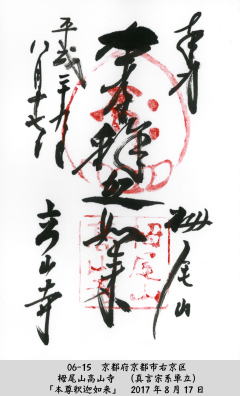 奉拝
栂尾山
本尊釈迦如来
高山寺
平成二十九年
八月十七日
06-15　京都府京都市右京区
栂尾山高山寺　（真言宗系単立）
「本尊釈迦如来」　2017年8月17日